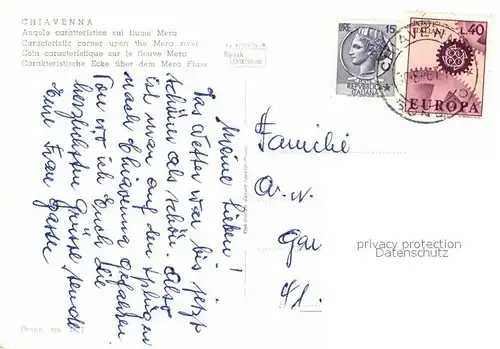 CHIAVENNA
Angolo caratteristico sul fiume Mera
Characteristic corner upon the Mera river
Coin caracteristique sur le fleuve Mera
Charakteristische Ecke über dem Mera Fluss
Kodak
EKTACHROME
LIRE 15
REPVBBLICA
ITALIANA
POSTE ITALIANE
L.40
EUROPA
Meine Lieben!
Das Wetter war bis jetzt
schöner als schön. Also
ist man auf den Splügen
nach Chiavenna gefahren
Von wo ich Euch die
herzlichsten Grüsse sende
Eure Frau
Familie
privacy protection
Datenschutz